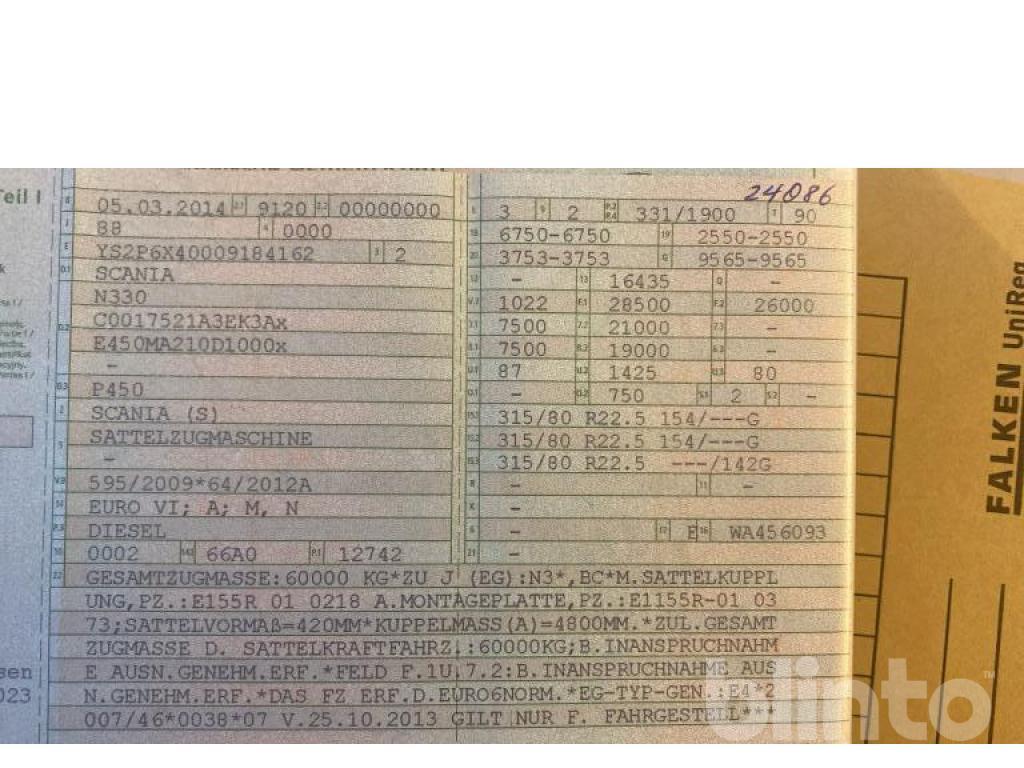 24086
Teil I
B 05.03.2014 2.1 9120 2.2 00000000
J 88 4 0000
E YS2P6X40009184162 3 2
D.1 SCANIA
D.2 N330
C0017521A3EK3Ax
E450MA210D1000x
-
D.3 P450
2 SCANIA (S)
5 SATTELZUGMASCHINE
-
V.9 595/2009*64/2012A
14 EURO VI; A; M, N
P.3 DIESEL
10 0002 14.1 66A0 P.1 12742
L 3 9 2 P.2 P.4 331/1900 T 90
18 6750-6750 19 2550-2550
20 3753-3753 G 9565-9565
12 - 13 16435 Q -
V.7 1022 F.1 28500 F.2 26000
7.1 7500 7.2 21000 7.3 -
8.1 7500 8.2 19000 8.3 -
U.1 87 U.2 1425 U.3 80
O.1 - O.2 750 S.1 2 S.2 -
15.1 315/80 R22.5 154/---G
15.2 315/80 R22.5 154/---G
15.3 315/80 R22.5 ---/142G
R - 11 -
K -
6 - 17 E 16 WA456093
21 -
22 GESAMTZUGMASSE:60000 KG*ZU J (EG):N3*,BC*M.SATTELKUPPL
UNG,PZ.:E155R 01 0218 A.MONTAGEPLATTE,PZ.:E1155R-01 03
73;SATTELVORMAß=420MM*KUPPELMASS(A)=4800MM.*ZUL.GESAMT
ZUGMASSE D. SATTELKRAFTFAHRZ.:60000KG;B.INANSPRUCHNAHM
E AUSN.GENEHM.ERF.*FELD F.1U.7.2:B.INANSPRUCHNAHME AUS
N.GENEHM.ERF.*DAS FZ ERF.D.EURO6NORM.*EG-TYP-GEN.:E4*2
007/46*0038*07 V.25.10.2013 GILT NUR F. FAHRGESTELL***
FALKEN UniReg
blinto™